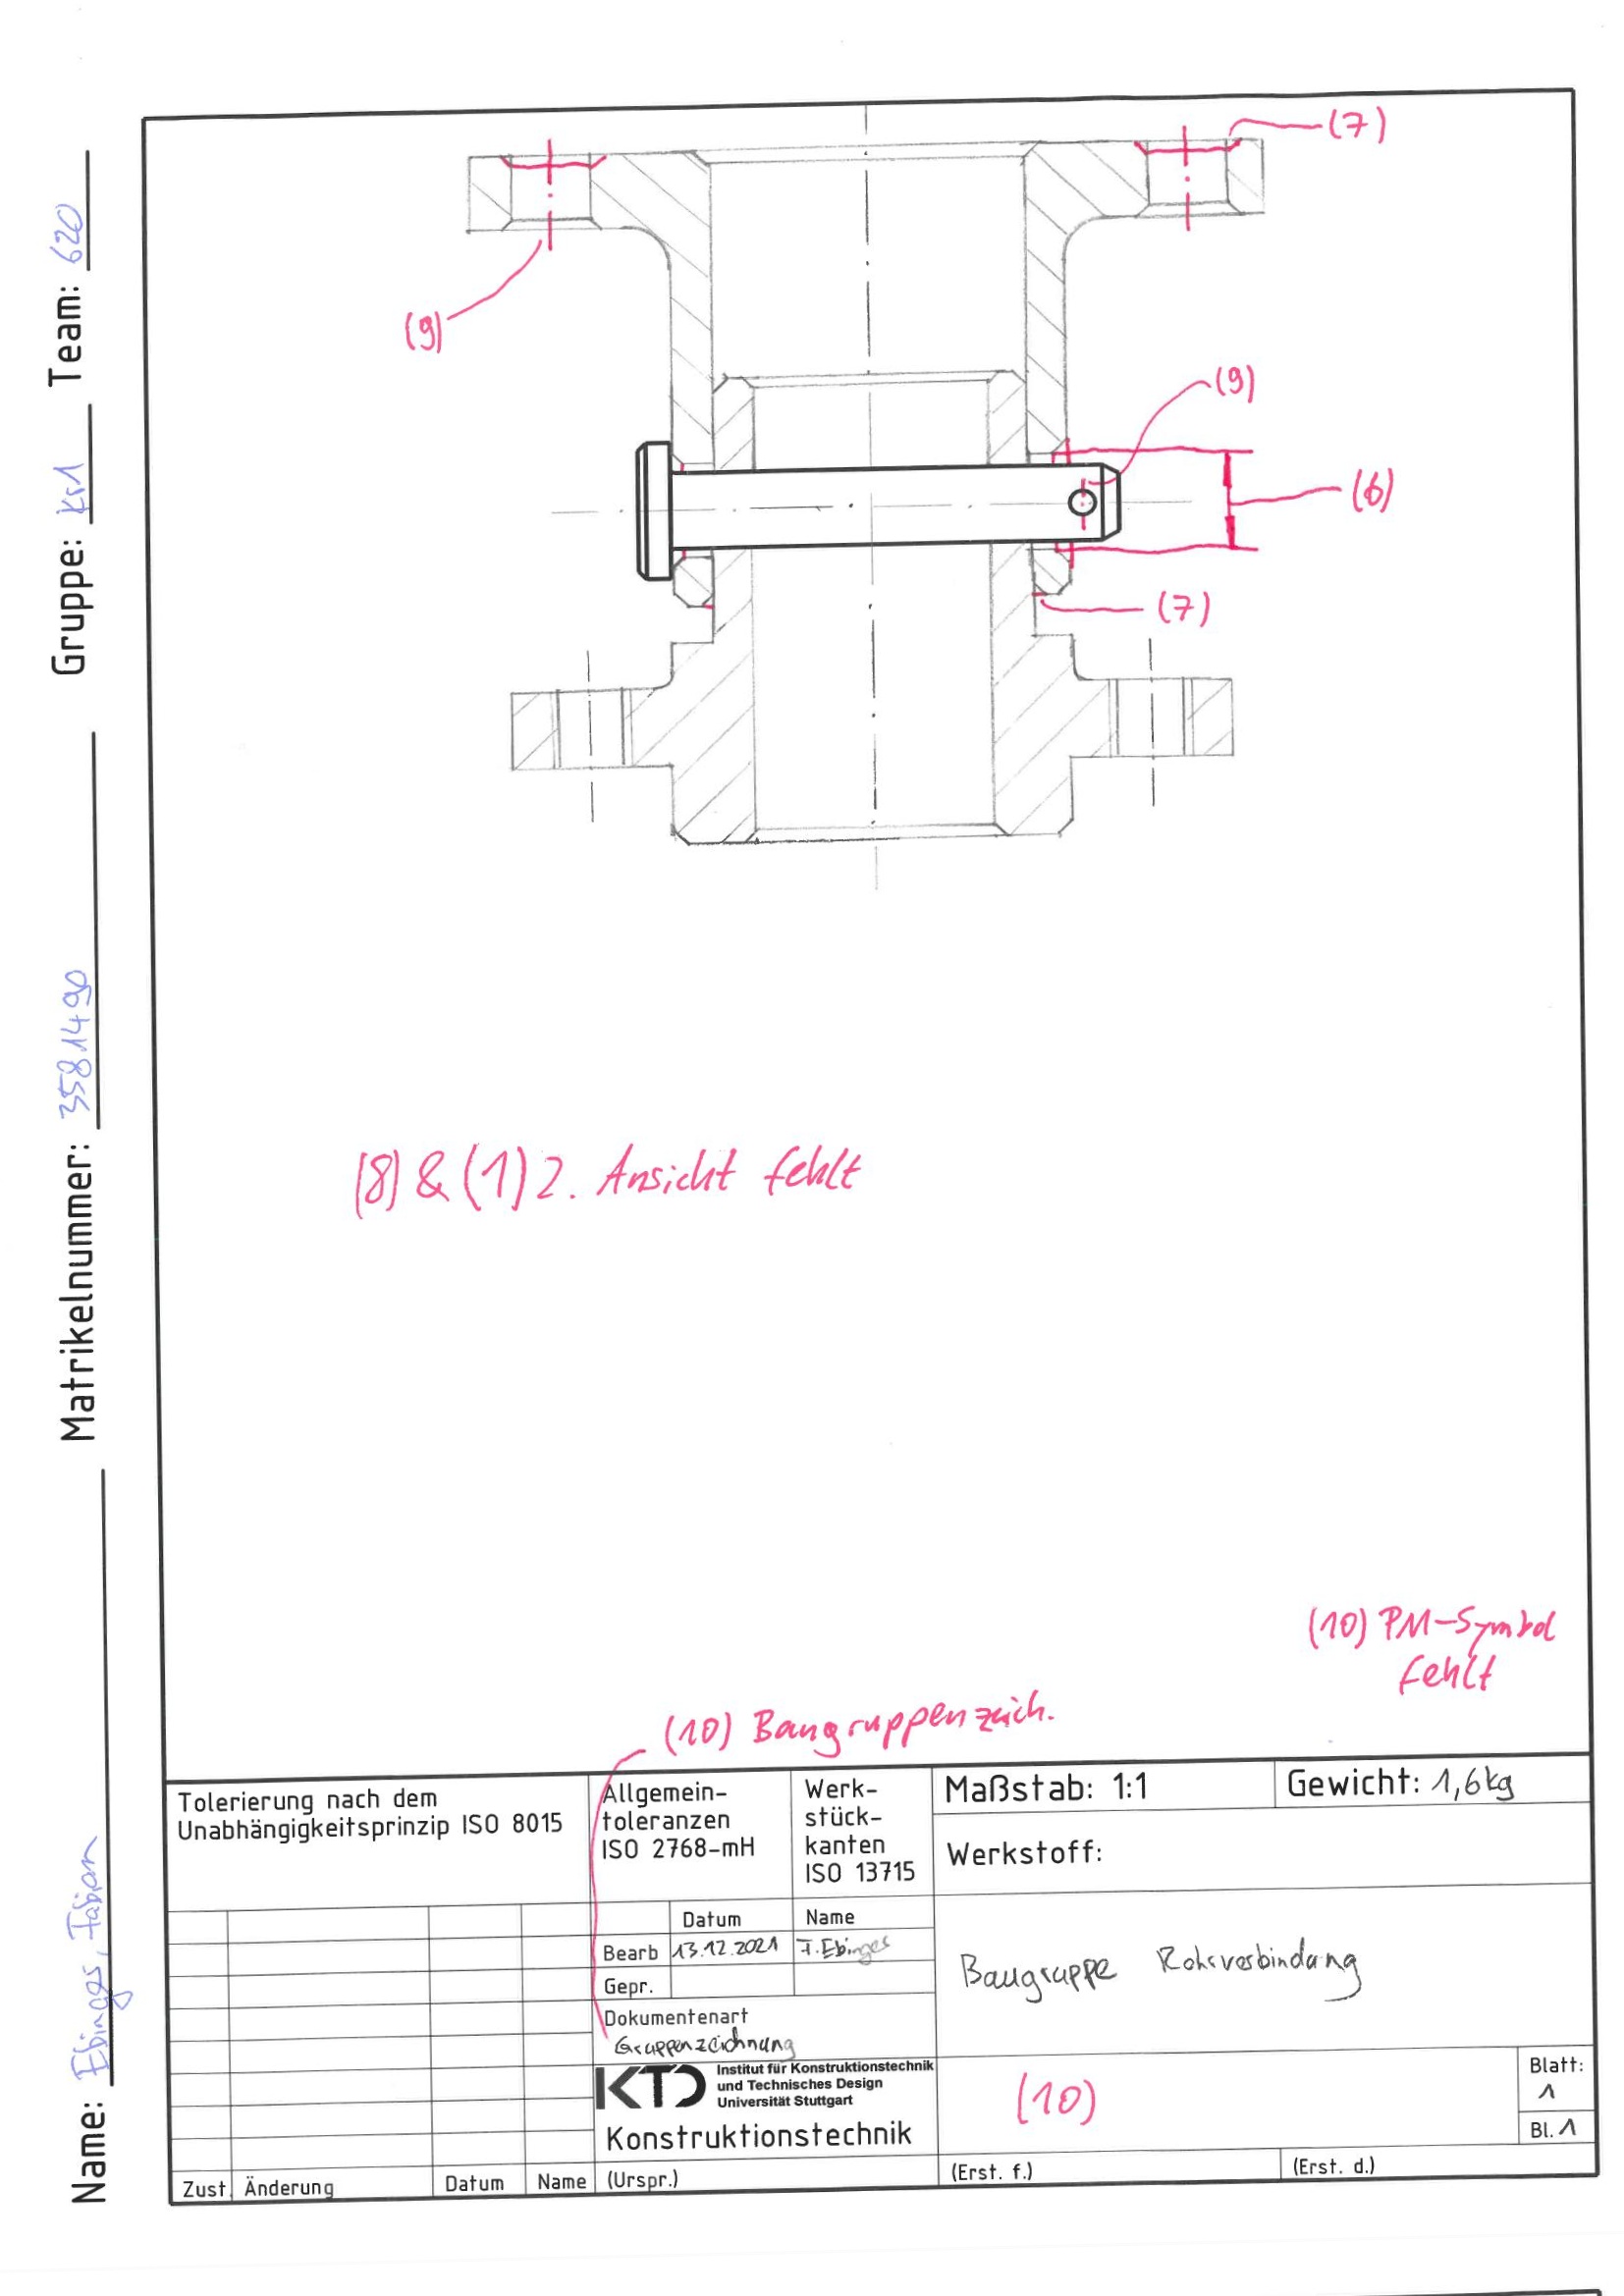 Name: Ebinger, Fabian Matrikelnummer: 3581490 Gruppe: Kr1 Team: 620
(7)
(9)
(9)
(6)
(7)
(8) & (1) 2. Ansicht fehlt
(10) PM-Symbol
fehlt
(10) Baugruppenzeich.
Tolerierung nach dem
Unabhängigkeitsprinzip ISO 8015
Allgemein-
toleranzen
ISO 2768-mH
Werk-
stück-
kanten
ISO 13715
Maßstab: 1:1
Gewicht: 1,6kg
Werkstoff:
Datum Name
Bearb 13.12.2021 F. Ebinger
Gepr.
Dokumentenart
Gruppenzeichnung
Baugruppe Rohrverbindung
KTD Institut für Konstruktionstechnik
und Technisches Design
Universität Stuttgart
Konstruktionstechnik
(10)
Blatt:
1
Bl. 1
Zust. Änderung Datum Name (Urspr.) (Erst. f.) (Erst. d.)